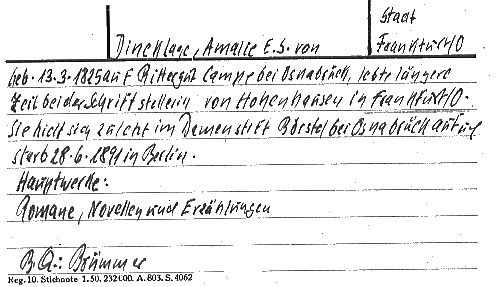 Stadt
Dincklage, Amalie E.S. von Frankfurt/O
geb. 13.3.1825 auf Rittergut Campe bei Osnabrück, lebte längere
Zeit bei der Schriftstellerin von Hohenhausen in Frankfurt/O.
Sie hielt sich zuletzt im Damenstift Börstel bei Osnabrück auf und
starb 28.6.1891 in Berlin.
Hauptwerke:
Romane, Novellen und Erzählungen
B.Qu.: Brümmer
Reg. 10. Stichnote 1. 50. 232t.00. A. 803. S. 4062